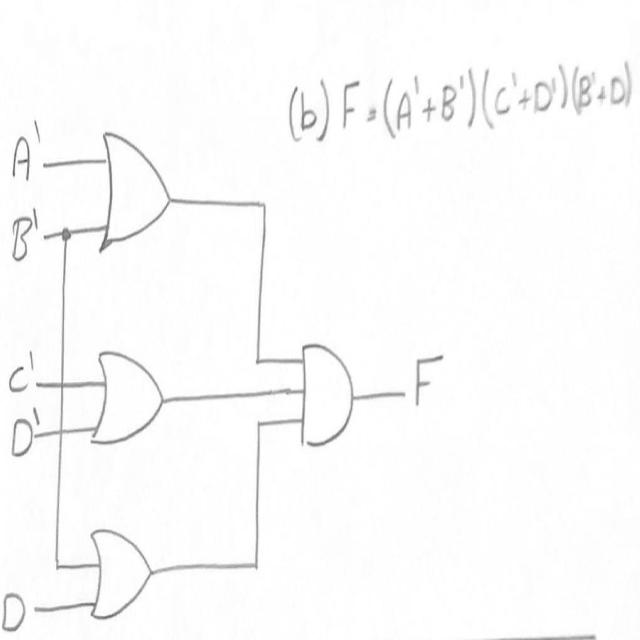 (b) F = (A'+B')(C'+D')(B'+D)
A'
B'
C'
D'
F
D